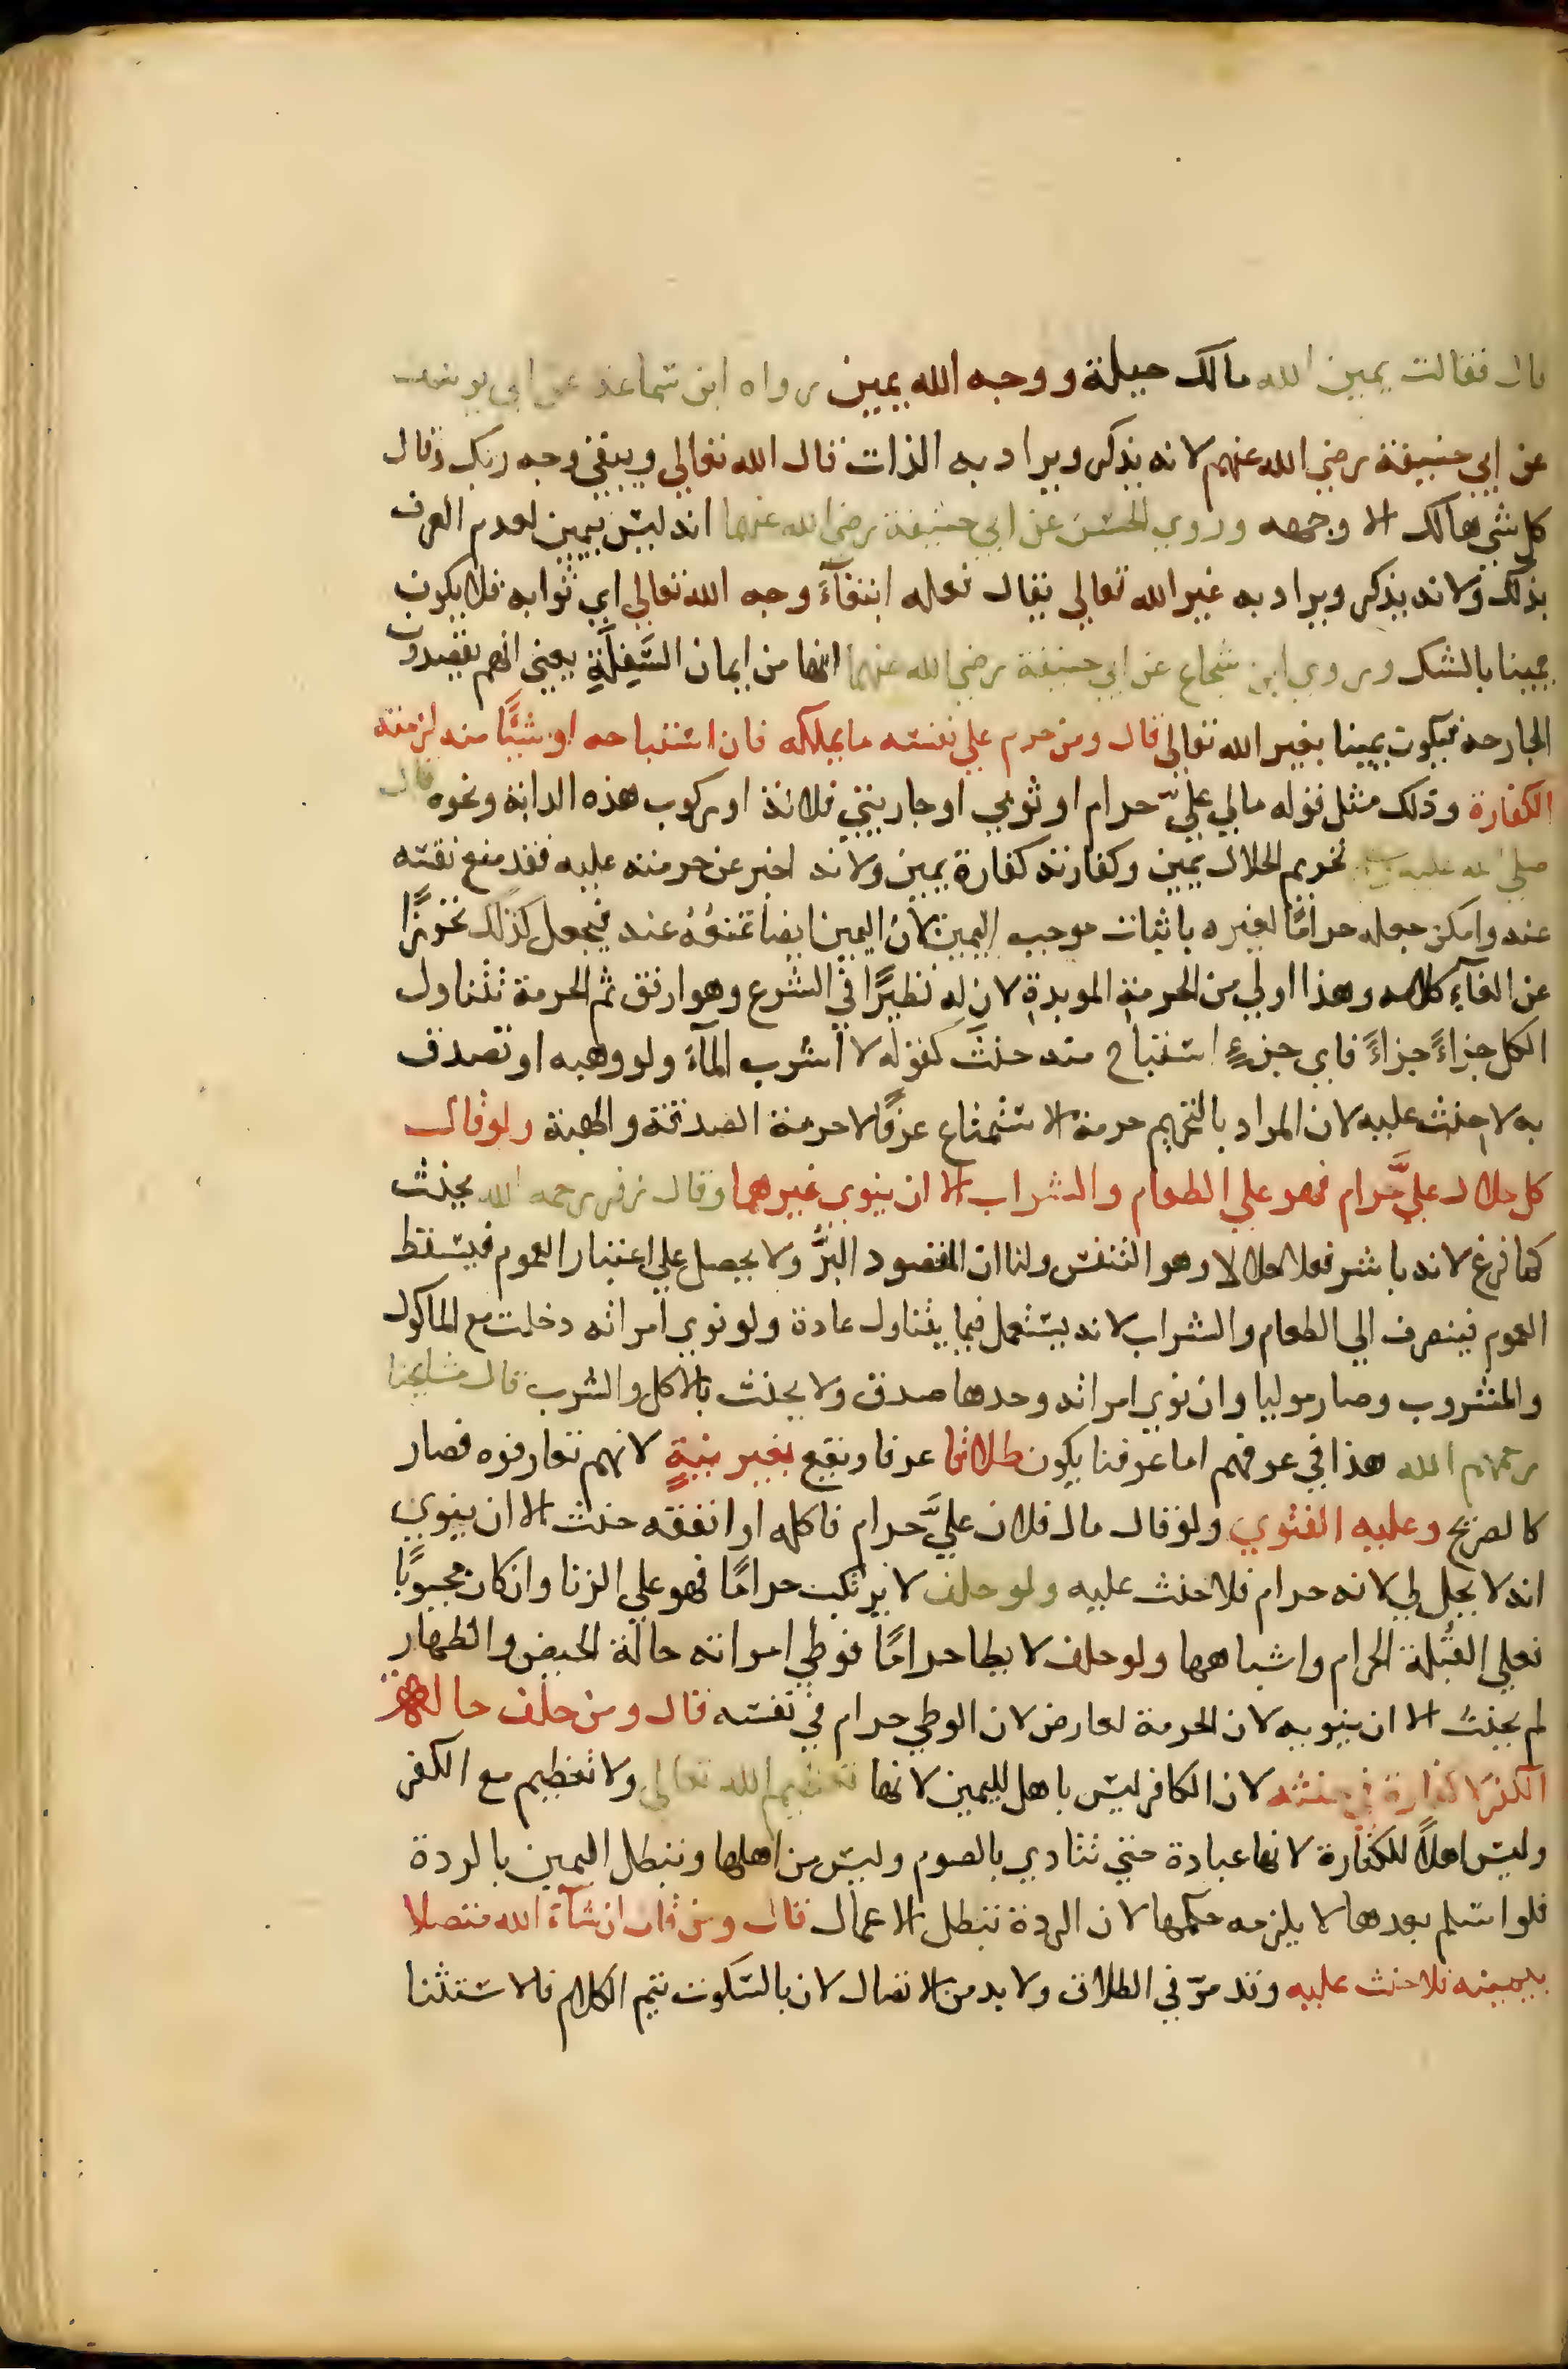 قال فقالت يمين الله مالك حيلة ووجه الله يمين رواه ابن سماعة عن ابي يوسف
عن ابي حنيفة رضي الله عنهم لانه يذكر ويراد به الذات قال الله تعالي ويبقي وجه ربك وقال
كل شي هالك الا وجهه وروي الحسن عن ابي حنيفة رضي الله عنهما انه ليس بيمين لعدم العرف
بذلك ولانه يذكر ويراد به غير الله تعالي يقال فعله ابتغآءَ وجه الله تعالي اي ثوابه فلا يكون
يمينا بالشك وروي ابن شجاع عن ابي حنيفة رضي الله عنهما انها من ايمان السَّفِلَةِ يعني انهم يقصدون
الجارحة فيكون يمينا بغير الله تعالي قال ومن حرم علي نفسه ما يملكه فان استباحه او شيًّا منه لزمته
الكفارة وذلك مثل قوله مالي عليَّ حرام او ثوبي او جاريتي فلانة او ركوب هذه الدابة ونحوه قال
صلي الله عليه تحريم الحلال يمين وكفارته كفارة يمين ولانه اخبر عن حرمته عليه فقد منع نفسه
عنه وامكن جعله حرامًا لغيره باثبات موجب اليمين لان اليمين ايضا تمنعُهُ عنه فيجعل كذلك تحرزًا
عن الغآءِ كلامه وهذا اولي من الحرمةِ الموبدةِ لان له نظيرًا في الشرع وهو ارفق ثم الحرمة تتناول
الكل جزاءً جزاءً فاي جزءٍ استباح منه حنث كقوله لا اشرب المآءَ ولو وهبه او تصدق
به لا حنث عليه لان المراد بالتحريم حرمة الاستمتاع عرفًا لا حرمة الصدقة والهبة ولو قال
كل حلال عليَّ حرام فهو علي الطعام والشراب الا ان ينوي غيرهما وقال زفر رحمه الله يحنث
كما فرغ لانه باشر فعلا حلالا وهو التنفس ولنا ان المقصود البرُّ ولا يحصل علي اعتبار العموم فيسقط
العموم فينصرف الي الطعام والشراب لانه يستعمل فيما يتناول عادة ولو نوي امراته دخلت مع الماكول
والمشروب وصار موليا وان نوي امراته وحدها صدق ولا يحنث بالاكل والشرب قال مشايخنا
رحمهم الله هذا في عرفهم اما عرفنا يكون طلاقا عرفا ويقع بغير نيةٍ لانهم تعارفوه فصار
كالصريح وعليه الفتوي ولو قال مال فلان عليَّ حرام فاكله او انفقه حنث الا ان ينوي
انه لا يحل لي لانه حرام فلا حنث عليه ولو حلف لا يرتكب حرامًا فهو علي الزنا وان كان مجبوبًا
فعلي القُبلة الحرام واشباهها ولو حلف لا يطا حرامًا فوطي امراته حالة الحيض والظهار
لم يحنث الا ان ينويه لان الحرمة لعارض لان الوطي حرام في نفسه قال ومن حلف حالة
الكفر لا كفارة في حنثه لان الكافر ليس باهل لليمين لانها تعظيم الله تعالي ولا تعظيم مع الكفر
وليس اهلاً للكفارة لانها عبادة حتي تتادي بالصوم وليس من اهلها وتبطل اليمين بالردة
فلو اسلم بعدها لا يلزمه حكمها لان الردة تبطل الاعمال قال ومن قال ان شآء الله متصلا
بيمينه فلا حنث عليه وقد مرّ في الطلاق ولا بد من الاتصال لان بالسكوت يتم الكلام فالاستثنا